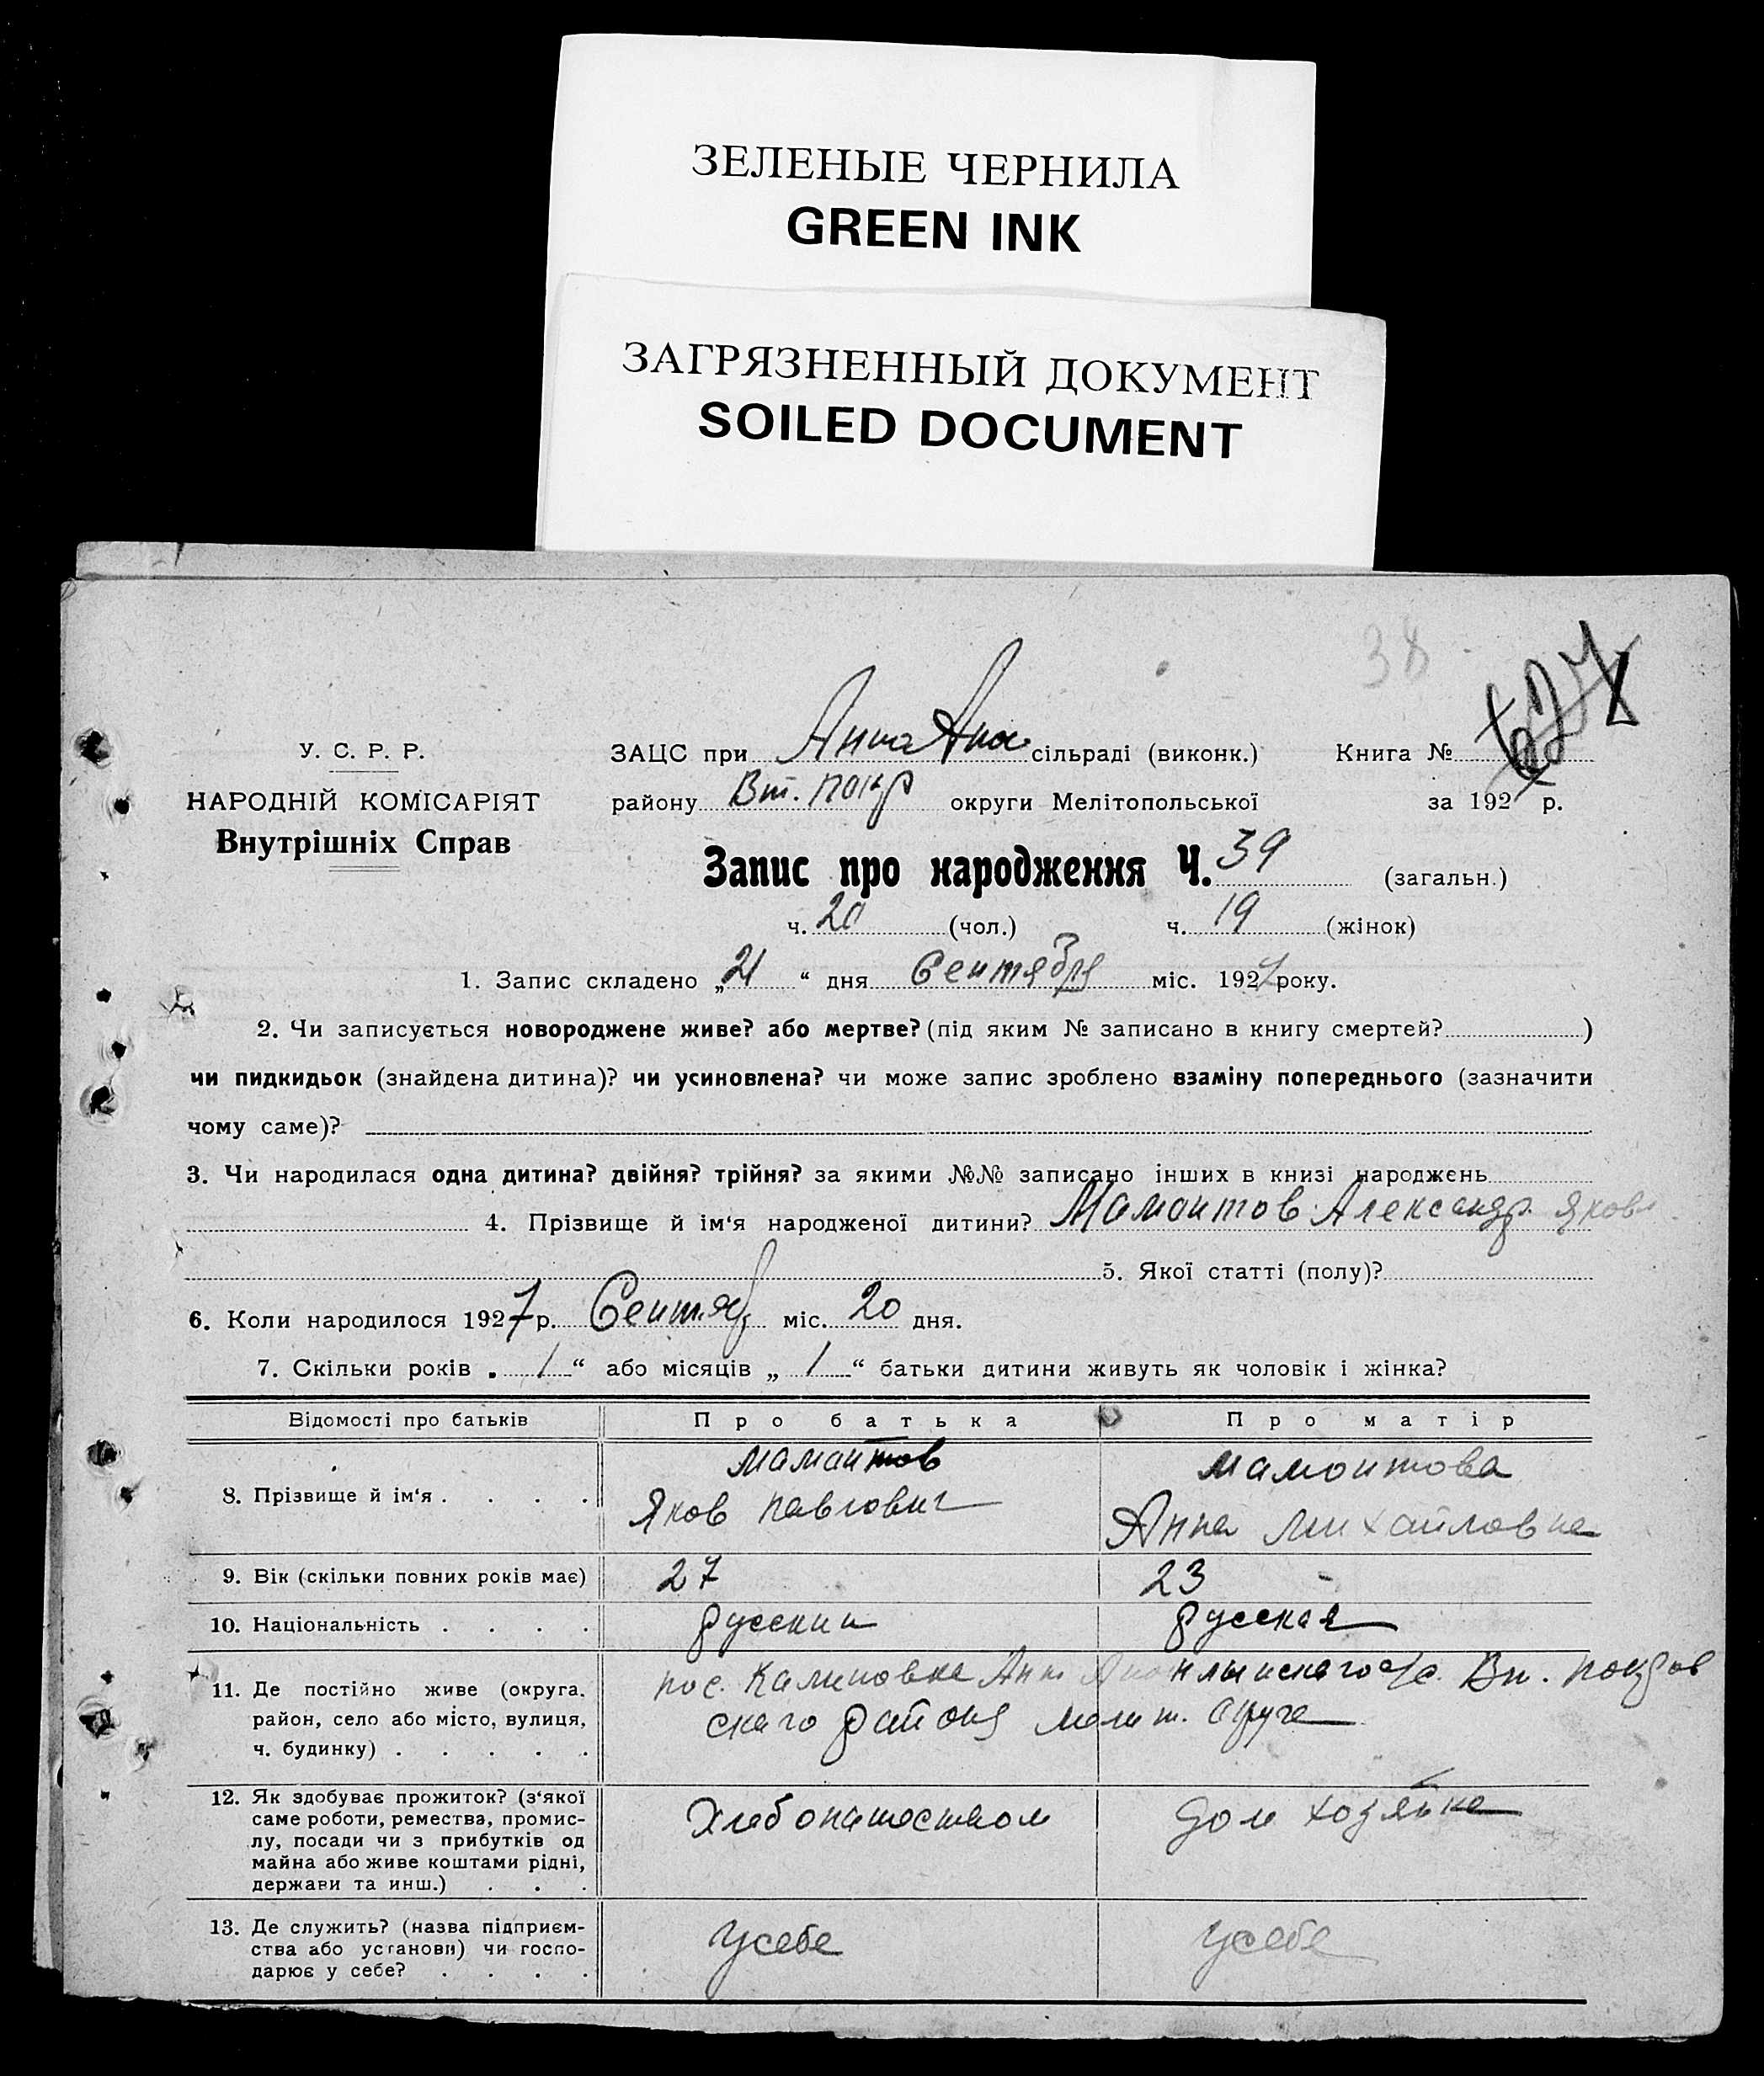 ЗЕЛЕНЫЕ ЧЕРНИЛА
GREEN INK
ЗАГРЯЗНЕННЫЙ ДОКУМЕНТ
SOILED DOCUMENT
38
У. С. Р. Р.
НАРОДНІЙ КОМІСАРІЯТ
Внутрішніх Справ
ЗАЦС при Анно Апо сільраді (виконк.) Книга №
району Вт. покр округи Мелітопольської за 192 р.
Запис про народження Ч. 39 (загальн.)
ч. 20 (чол.) ч. 19 (жінок)
1. Запис складено „21“ дня Сентября міс. 1927 року.
2. Чи записується новороджене живе? або мертве? (під яким № записано в книгу смертей? )
чи пидкидьок (знайдена дитина)? чи усиновлена? чи може запис зроблено взаміну попереднього (зазначити
чому саме)?
3. Чи народилася одна дитина? двійня? трійня? за якими №№ записано інших в книзі народжень
4. Прізвище й ім‘я народженої дитини? Мамонтов Александр Яков
5. Якої статті (полу)?
6. Коли народилося 1927 р. Сентяб міс. 20 дня.
7. Скільки років „ 1 “ або місяців „ 1 “ батьки дитини живуть як чоловік і жінка?
Відомості про батьків Про батька Про матір
8. Прізвище й ім‘я . . . .
Мамонтов
Яков Павлович
Мамонтова
Анна Михайловна
9. Вік (скільки повних років має) 27 23
10. Національність . . . . русский русская
11. Де постійно живе (округа,
район, село або місто, вулиця,
ч. будинку) . . . . .
пос. Калиновка Анно с/с. Вт. Покров
скаго района Мелит. Округа
12. Як здобуває прожиток? (з‘якої
саме роботи, ремества, промис-
лу, посади чи з прибутків од
майна або живе коштами рідні,
держави та инш.) . . .
Хлебопашеством
Дом хозяйка
13. Де служить? (назва підприєм-
ства або установи) чи госпо-
дарює у себе? . . . .
У себе
У себе